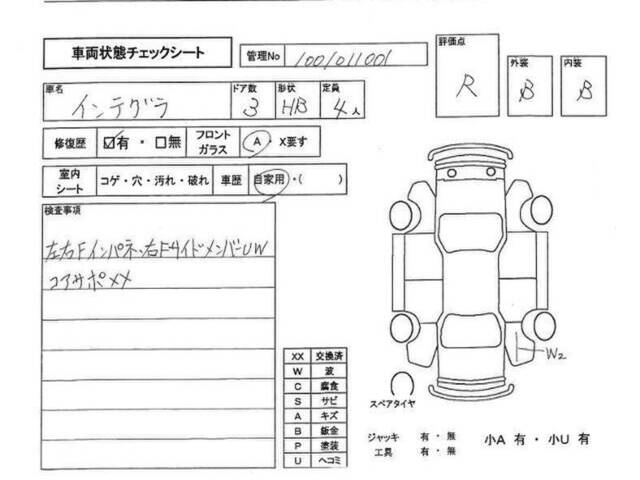 車両状態チェックシート
管理No 1001011001
評価点
R
外装
B
内装
B
車名
インテグラ
ドア数
3
形状
HB
定員
4人
修復歴 ☑有・□無
フロントガラス A・X要す
室内シート コゲ・穴・汚れ・破れ
車歴 自家用・( )
検査事項
左右Fインパネ、右FサイドメンバーUW
コアサポXX
XX 交換済
W 波
C 腐食
S サビ
A キズ
B 鈑金
P 塗装
U ヘコミ
W2
スペアタイヤ
ジャッキ 有・無
工具 有・無
小A 有・小U 有